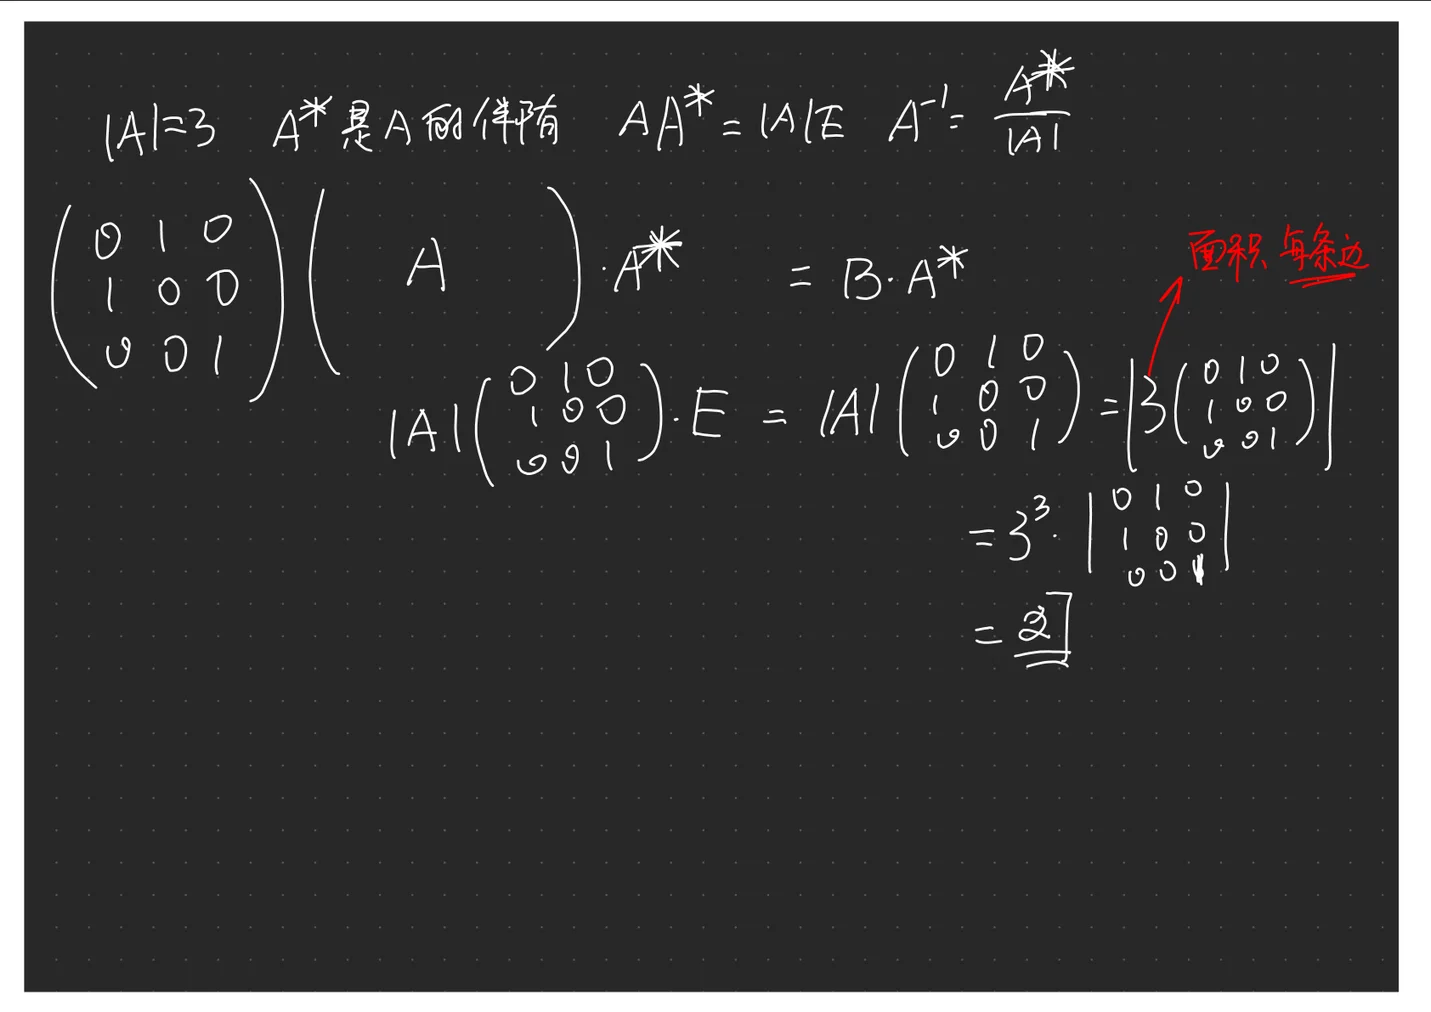 |A|=3 A*是A的伴随 AA*=|A|E A⁻¹=A*/|A|
(0 1 0
1 0 0
0 0 1)(A)·A* = B·A*
面积 每条边
|A|(0 1 0
1 0 0
0 0 1)·E = |A|(0 1 0
1 0 0
0 0 1)=|3(0 1 0
1 0 0
0 0 1)|
=3³·|0 1 0
1 0 0
0 0 1|
=27